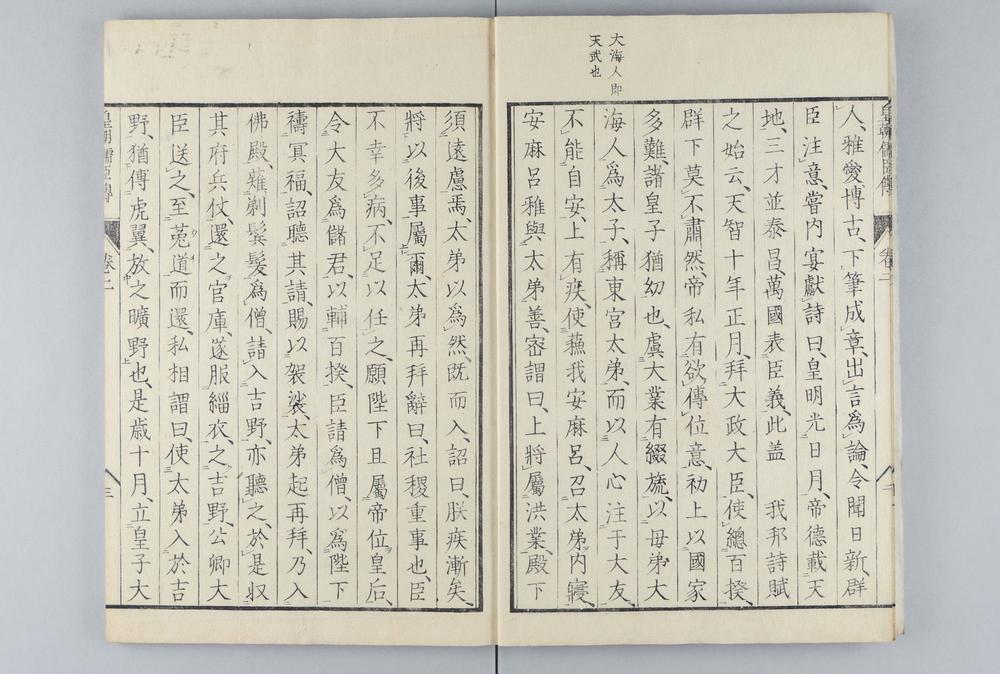 大海人即
天武也
皇朝儒臣傳 卷二
人、雅愛博古、下筆成章、出言為論、令聞日新、群
臣注意、嘗內宴獻詩曰、皇明光日月、帝德載天
地、三才並泰昌、萬國表臣義、此盖　我邦詩賦
之始云、天智十年正月、拜大政大臣、使總百揆、
群下莫不肅然、帝私有欲傳位意、初上以國家
多難、諸皇子猶幼也、虞大業有綴旒、以母弟大
海人為太子、稱東宮太弟、而以人心注于大友、
不能自安、上有疾、使蘓我安麻呂、召太弟內寢、
安麻呂雅與太弟善、密謂曰、上將屬洪業、殿下
須遠慮焉、太弟以為然、既而入、詔曰、朕疾漸矣、
將以後事屬爾、太弟再拜辭曰、社稷重事也、臣
不幸多病、不足以任之、願陛下且屬帝位皇后、
令大友為儲君、以輔百揆、臣請為僧、以為陛下
禱冥福、詔聽其請、賜以袈裟、太弟起再拜、乃入
佛殿、薙剃鬂髮為僧、請入吉野、亦聽之、於是収
其府兵仗、還之官庫、遂服緇衣、之吉野、公卿大
臣送之、至菟道而還、私相謂曰、使太弟入於吉
野、猶傳虎翼、放之曠野也、是歲十月、立皇子大
皇朝儒臣傳 卷二 三